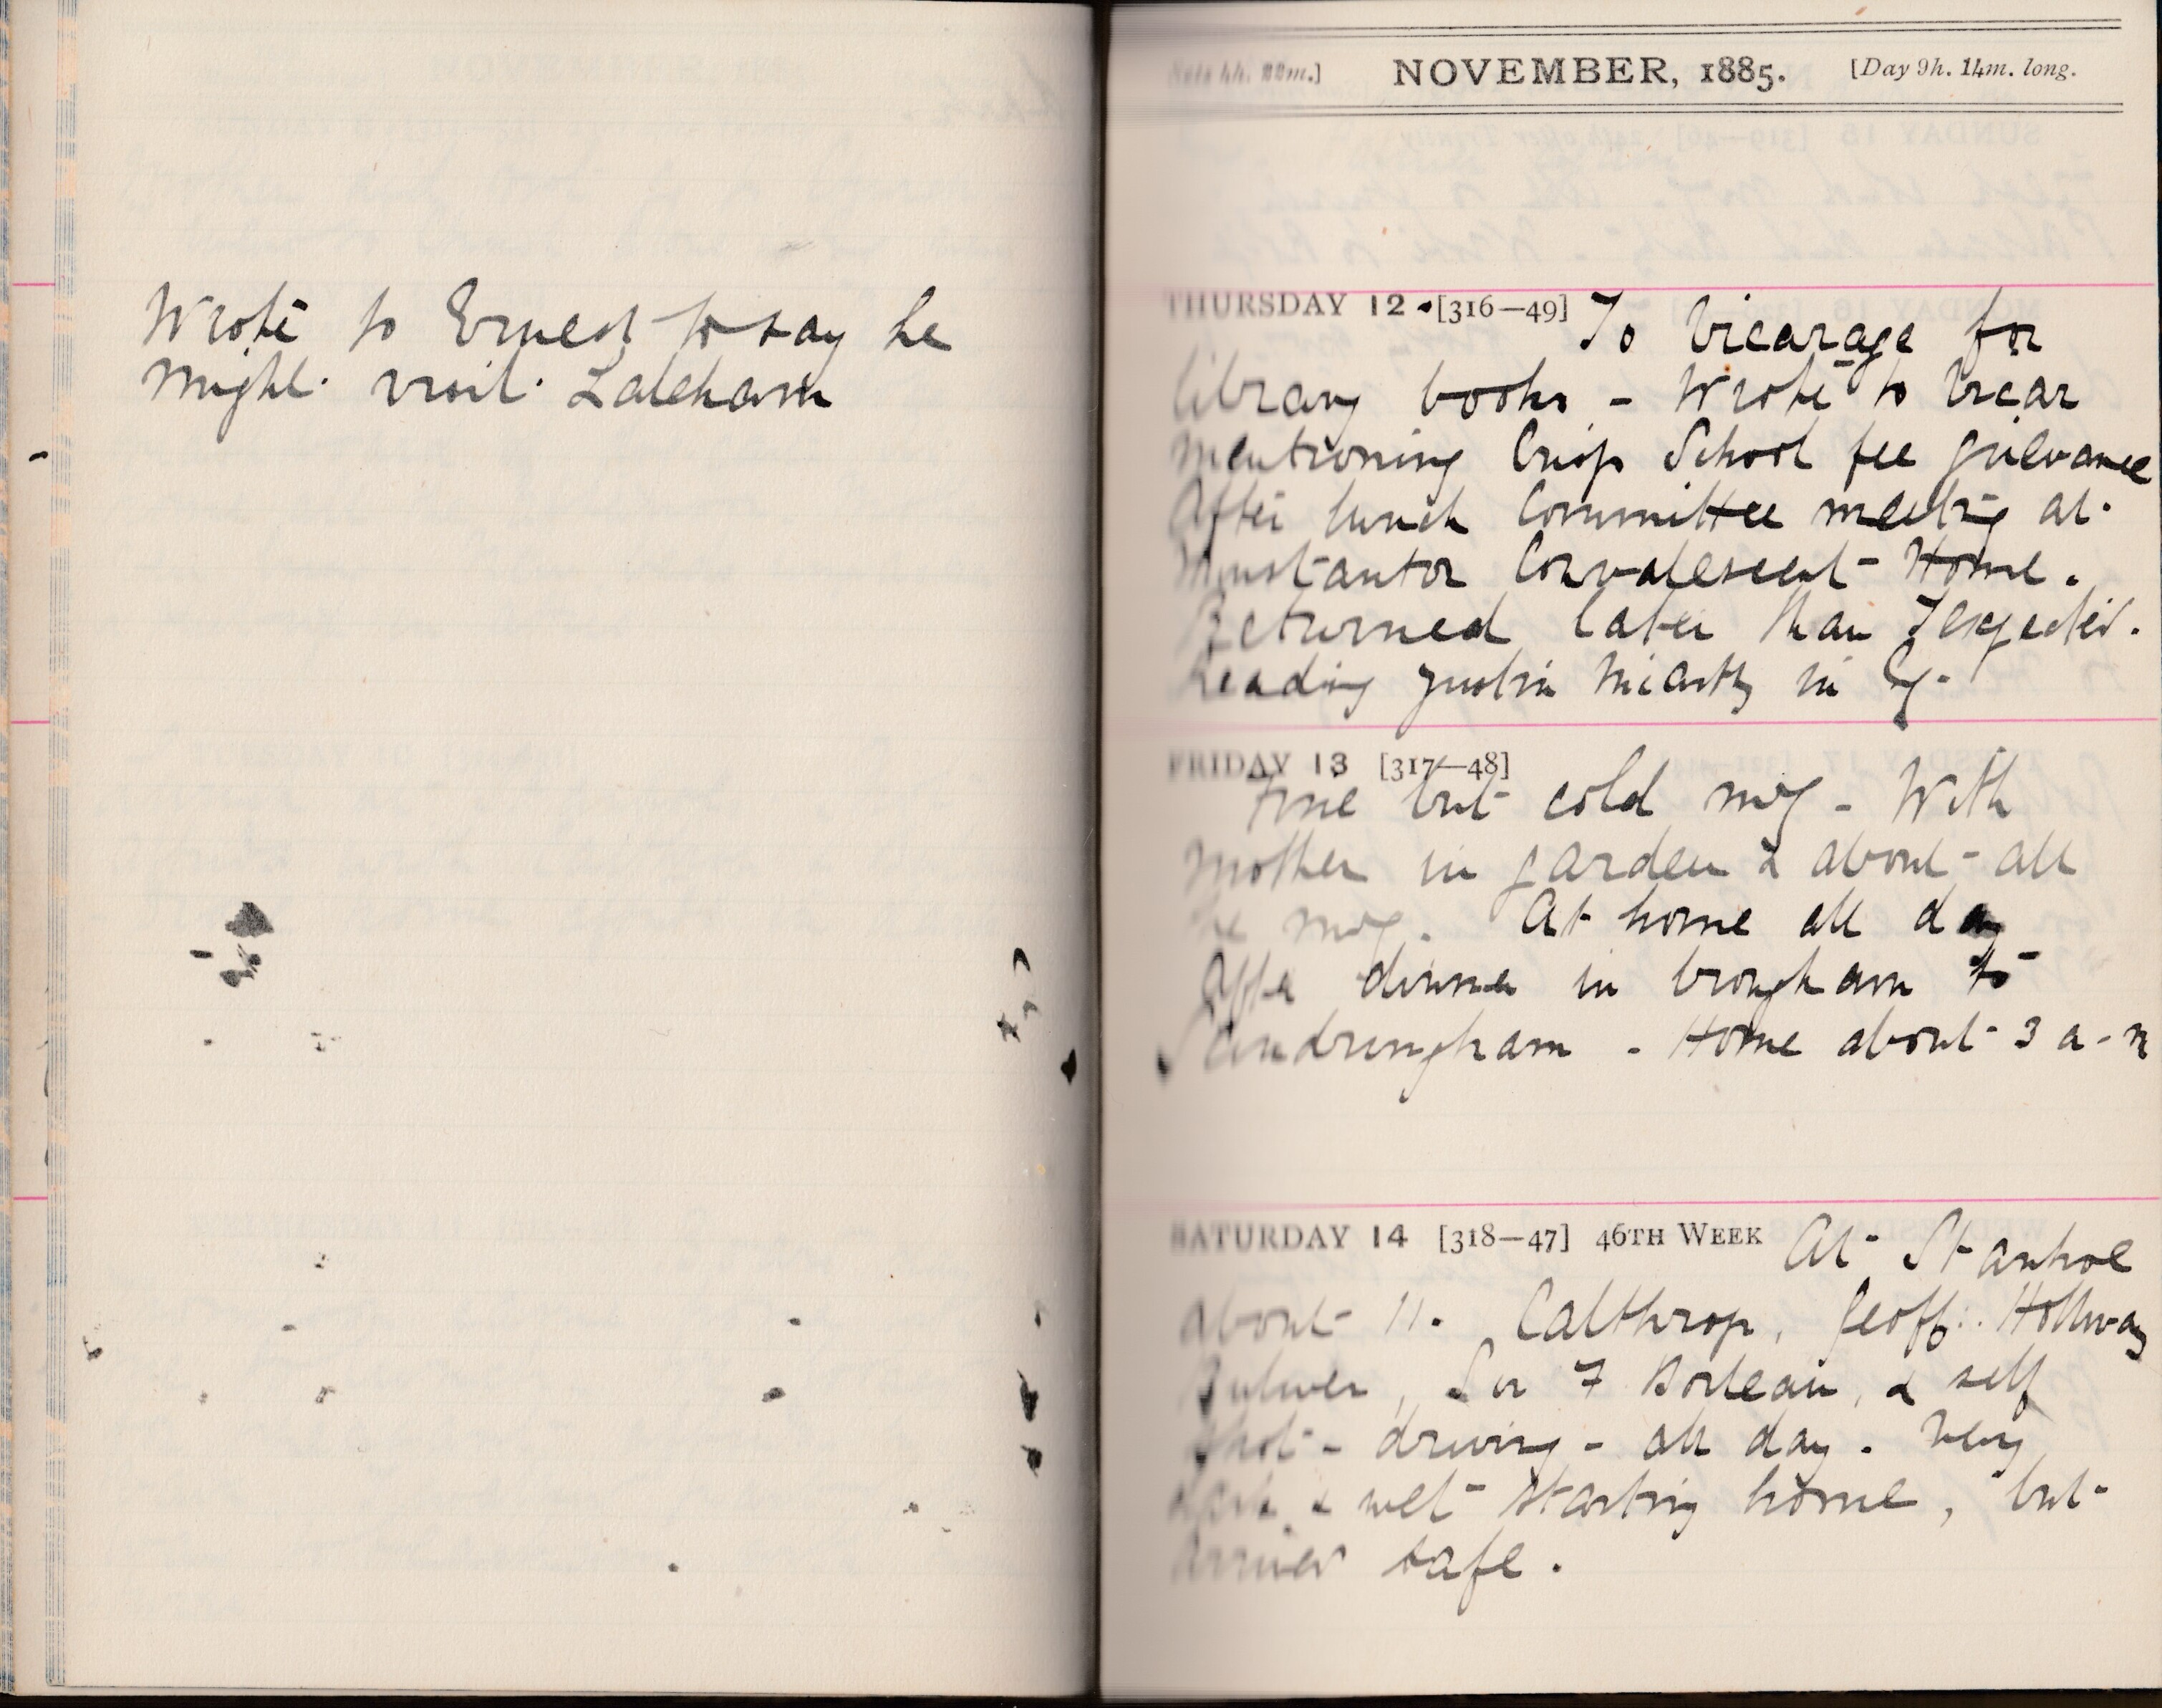 Wrote to Ernest to say he
might visit Laleham
NOVEMBER, 1885. [Day 9h. 14m. long.
THURSDAY 12 [316—49] To Vicarage for
library books - Wrote to Vicar
mentioning Crisp School fee grievance
After lunch Committee meeting at
Hunstanton Convalescent Home.
Returned later than I expected.
Reading Justin McCarthy in Eg.
FRIDAY 13 [317—48]
Fine but cold mg - With
mother in garden & about all
the mg. At home all day
After dinner in brougham to
Sandringham - Home about 3 a-m
SATURDAY 14 [318—47] 46TH WEEK At Stanhoe
about 11. Calthrop, Geoff:. Hollway
Bulwer, Sir F Boileau, & self
shot - driving - all day. Very
dark & wet starting home, but
arrived safe.